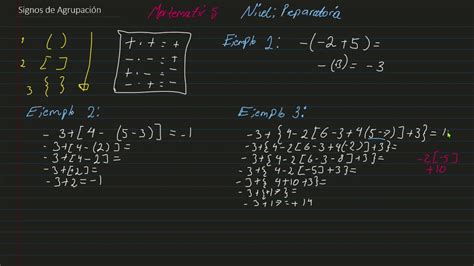 Signos de Agrupación
Nivel: Peparatoria
1 ( )
2 [ ]
3 { }
+ · + = +
- · - = +
+ · - = -
- · + = -
Ejemplo 1: -(-2+5)=
-(3) = -3
Ejemplo 2:
-3+[4-(5-3)]=-1
-3+[4-(2)]=
-3+[4-2]=
-3+[2]=
-3+2=-1
Ejemplo 3:
-3+{4-2[6-3+4(5-7)]+3}=1
-3+{4-2[6-3+4(-2)]+3}=
-3+{4-2[6-3-8]+3}=
-3+{4-2[-5]+3}=
-3+{4+10+3}=
-3+{+17}=
-3+17=+14
-2[-5]
+10